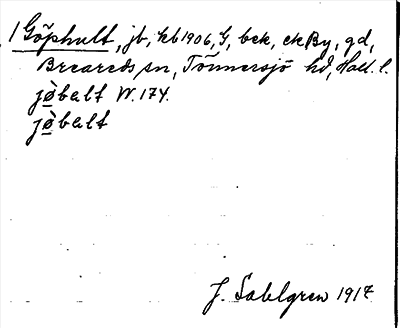 1 Göphult, jb, kb 1906, G, bek, ek By, gd,
Breareds sn, Tönnersjö hd, Hall. l.
jø̀balt W. 174.
jø̀balt
J. Sahlgren 1917